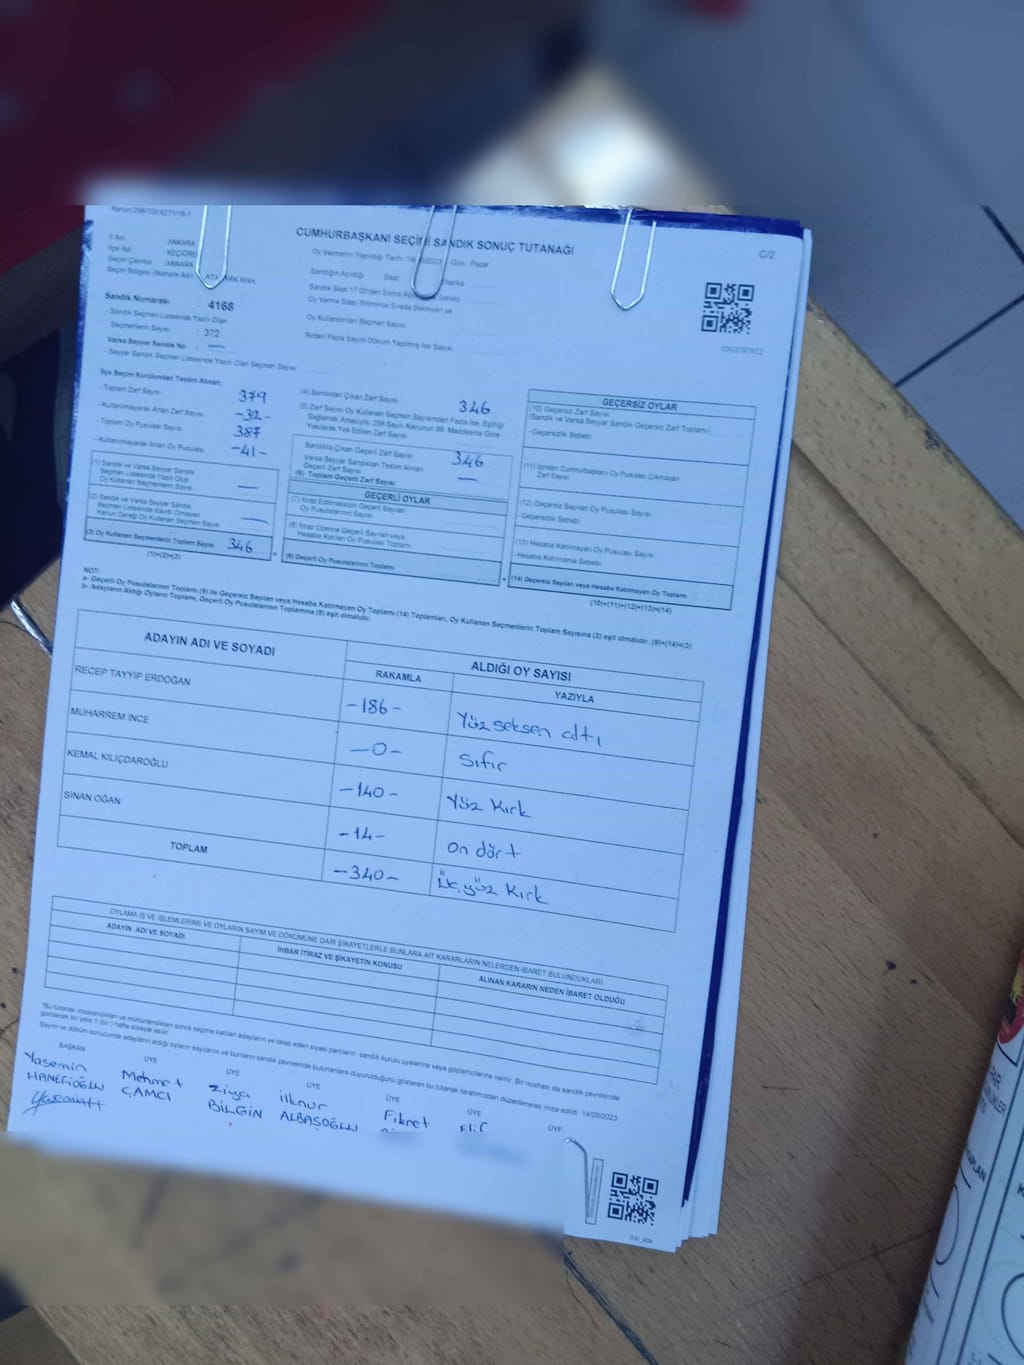 Kanun:298/105:6271/18-1
CUMHURBAŞKANI SEÇİMİ SANDIK SONUÇ TUTANAĞI
C/2
İl Adı : ANKARA
İlçe Adı : KEÇİÖREN
Seçim Çevresi : ANKARA
Seçim Bölgesi (Mahalle Adı) : MAH.
Oy Vermenin Yapıldığı Tarih : 14/05/2023 Gün : Pazar
Sandığın Açıldığı Saat Dakika
Sandık Saat 17.00'den Sonra
Oy Verme Saati Bitiminde Sırada Bekleyen ve
Oy Kullandırılan Seçmen Sayısı
Birden Fazla Sayım Döküm Yapılmış İse Sayısı
Sandık Numarası : 4168
- Sandık Seçmen Listesinde Yazılı Olan
Seçmenlerin Sayısı : 372
Varsa Seyyar Sandık No —
- Seyyar Sandık Seçmen Listesinde Yazılı Olan Seçmen Sayısı
İlçe Seçim Kurulundan Teslim Alınan;
- Toplam Zarf Sayısı 379
- Kullanılmayarak Artan Zarf Sayısı -32-
- Toplam Oy Pusulası Sayısı 387
- Kullanılmayarak Artan Oy Pusulası -41-
(1) Sandık ve Varsa Seyyar Sandık
Seçmen Listesinde Yazılı Olup
Oy Kullanan Seçmenlerin Sayısı —
(2) Sandık ve Varsa Seyyar Sandık
Seçmen Listesinde Kayıtlı Olmayan
Kanun Gereği Oy Kullanan Seçmen Sayısı —
(3) Oy Kullanan Seçmenlerin Toplam Sayısı 346
(1)+(2)=(3)
(4) Sandıktan Çıkan Zarf Sayısı 346
(5) Zarf Sayısı Oy Kullanan Seçmen Sayısından Fazla İse, Eşitliği
Sağlamak Amacıyla; 298 Sayılı Kanunun 98. Maddesine Göre
Yakılarak Yok Edilen Zarf Sayısı
Sandıkta Çıkan Geçerli Zarf Sayısı 346
Varsa Seyyar Sandıktan Teslim Alınan
Geçerli Zarf Sayısı —
(6) Toplam Geçerli Zarf Sayısı
GEÇERLİ OYLAR
(7) İtiraz Edilmeksizin Geçerli Sayılan
Oy Pusulalarının Sayısı
(8) İtiraz Üzerine Geçerli Sayılan veya
Hesaba Katılan Oy Pusulası Toplamı
(9) Geçerli Oy Pusulalarının Toplamı
1093797672
GEÇERSİZ OYLAR
(10) Geçersiz Zarf Sayısı
(Sandık ve Varsa Seyyar Sandık Geçersiz Zarf Toplamı)
- Geçersizlik Sebebi
(11) İçinden Cumhurbaşkanı Oy Pusulası Çıkmayan
Zarf Sayısı
(12) Geçersiz Sayılan Oy Pusulası Sayısı
- Geçersizlik Sebebi
(13) Hesaba Katılmayan Oy Pusulası Sayısı
- Hesaba Katılmama Sebebi
(14) Geçersiz Sayılan veya Hesaba Katılmayan Oy Toplamı
(10)+(11)+(12)+(13)=(14)
NOT:
a- Geçerli Oy Pusulalarının Toplamı (9) ile Geçersiz Sayılan veya Hesaba Katılmayan Oy Toplamı (14) Toplamları, Oy Kullanan Seçmenlerin Toplam Sayısına (3) eşit olmalıdır. (9)+(14)=(3)
b- Adayların Aldığı Oyların Toplamı, Geçerli Oy Pusulalarının Toplamına (9) eşit olmalıdır.
ADAYIN ADI VE SOYADI
ALDIĞI OY SAYISI
RAKAMLA YAZIYLA
RECEP TAYYİP ERDOĞAN -186- Yüz seksen altı
MUHARREM İNCE -0- Sıfır
KEMAL KILIÇDAROĞLU -140- Yüz Kırk
SİNAN OĞAN -14- On dört
TOPLAM -340- Üç yüz Kırk
OYLAMA İŞ VE İŞLEMLERİNE VE OYLARIN SAYIM VE DÖKÜMÜNE DAİR ŞİKAYETLERLE BUNLARA AİT KARARLARIN NELERDEN İBARET BULUNDUKLARI
ADAYIN ADI VE SOYADI İHBAR İTİRAZ VE ŞİKAYETİN KONUSU ALINAN KARARIN NEDEN İBARET OLDUĞU
"Bu tutanak imzalandıktan ve mühürlendikten sonra seçime katılan adayların ve talep eden siyasi partilerin sandık kurulu üyelerine veya gözlemcilerine verilir. Bir nüshası da sandık çevresinde
görülecek bir yere 1 (bir) hafta süreyle asılır.
Sayım ve döküm sonucunda adayların aldığı oyların sayılarını ve bunların sandık çevresinde bulunanlara duyurulduğunu gösteren bu tutanak tarafımızdan düzenlenerek imza edildi. 14/05/2023
BAŞKAN ÜYE ÜYE ÜYE ÜYE ÜYE ÜYE
Yasemin Mehmet Ziya ilknur Fikret Elif
HANECİOĞLU ÇAMCI BİLGİN ALBAŞOĞLU